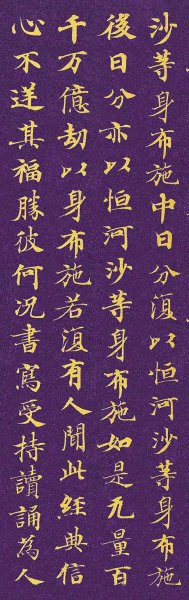 沙等身布施中日分復以恒河沙等身布施
後日分亦以恒河沙等身布施如是无量百
千万億劫以身布施若復有人聞此經典信
心不逆其福勝彼何况書寫受持讀誦為人